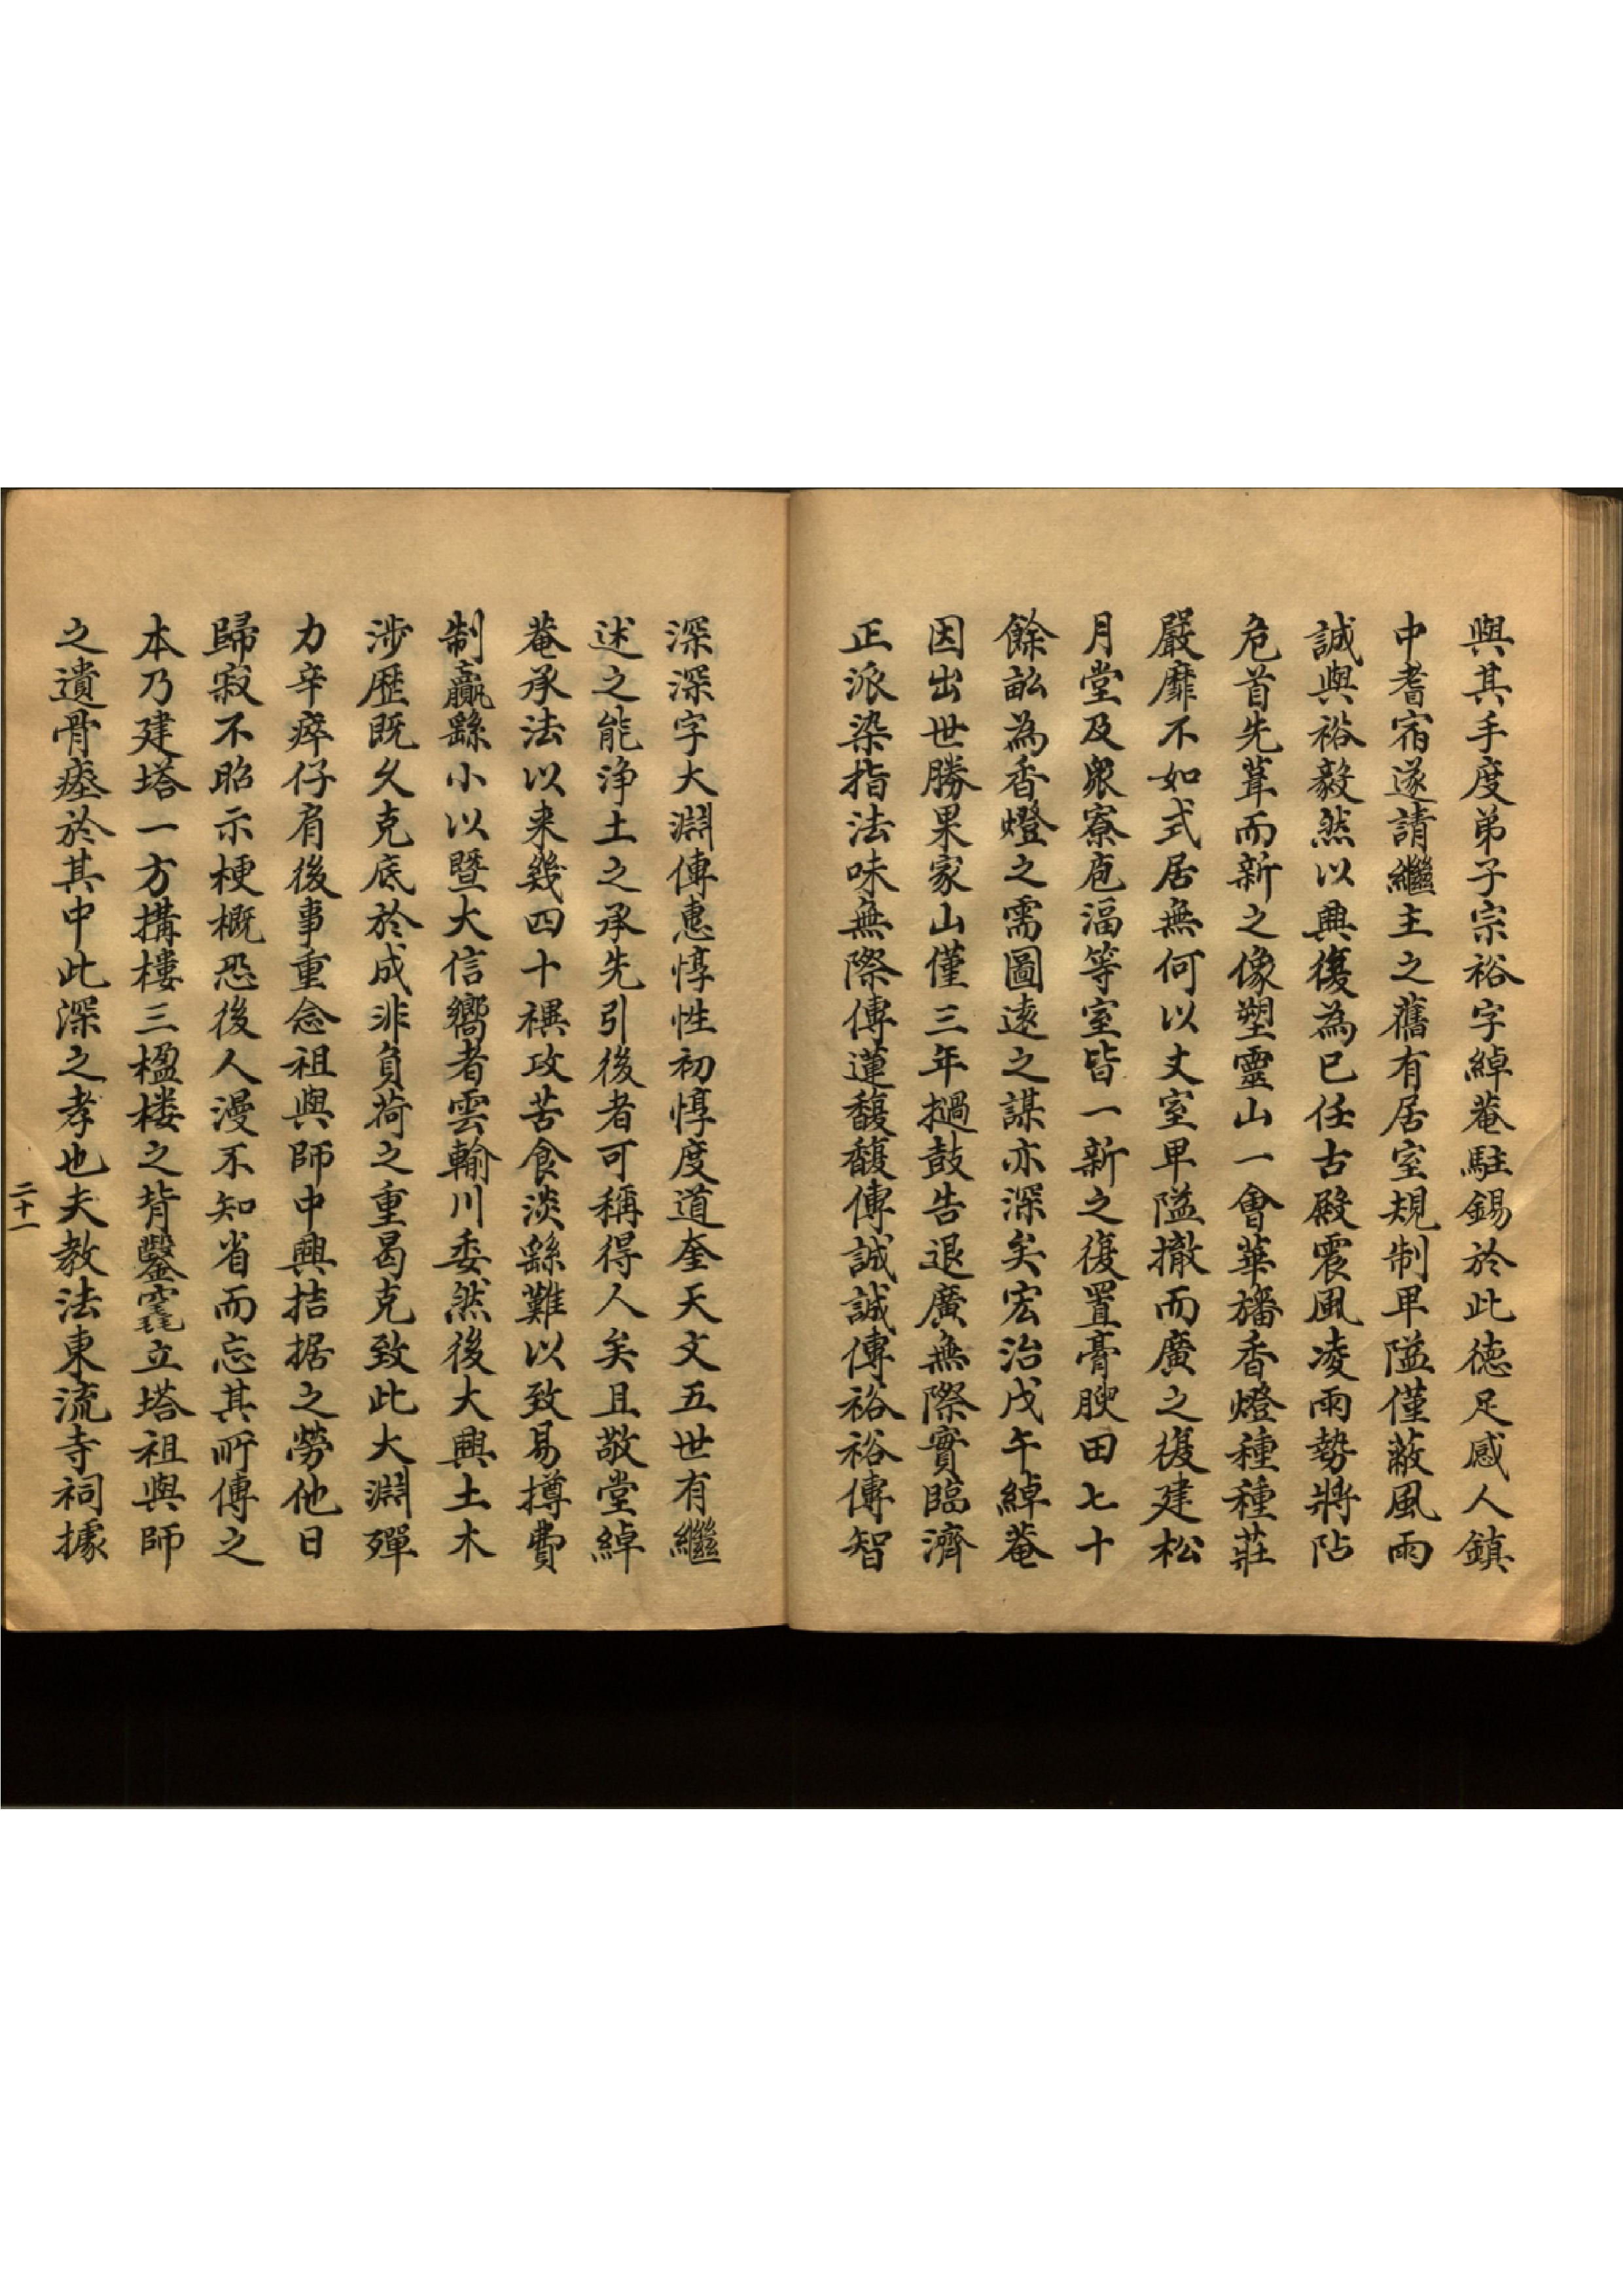 與其手度弟子宗裕字綽菴駐錫於此徳足感人鎮
中耆宿遂請繼主之舊有居室規制卑隘僅蔽風雨
誠與裕毅然以興復為已任古殿震風凌雨勢將阽
危首先葺而新之像塑靈山一會華旛香燈種種莊
嚴靡不如式居無何以丈室卑隘撤而廣之復建松
月堂及衆寮庖湢等室皆一新之復置膏腴田七十
餘畝為香燈之需圖遠之謀亦深矣宏治戊午綽菴
因出世勝果家山僅三年撾鼓告退廣無際實臨濟
正派染指法味無際傳蓮馥馥傳誠誠傳裕裕傳智
深深字大淵傳惠惇性初惇度道奎天文五世有繼
述之能浄土之承先引後者可稱得人矣且敬堂綽
菴承法以来幾四十禩攻苦食淡繇難以致易撙費
制贏繇小以暨大信嚮者雲輸川委然後大興土木
涉歷既久克底於成非負荷之重曷克致此大淵殫
力辛瘁仔肩後事重念祖與師中興拮据之勞他日
歸寂不昭示梗概恐後人漫不知省而忘其所傳之
本乃建塔一方搆樓三楹楼之背鑿窀立塔祖與師
之遺骨瘞於其中此深之孝也夫教法東流寺祠據
二十一